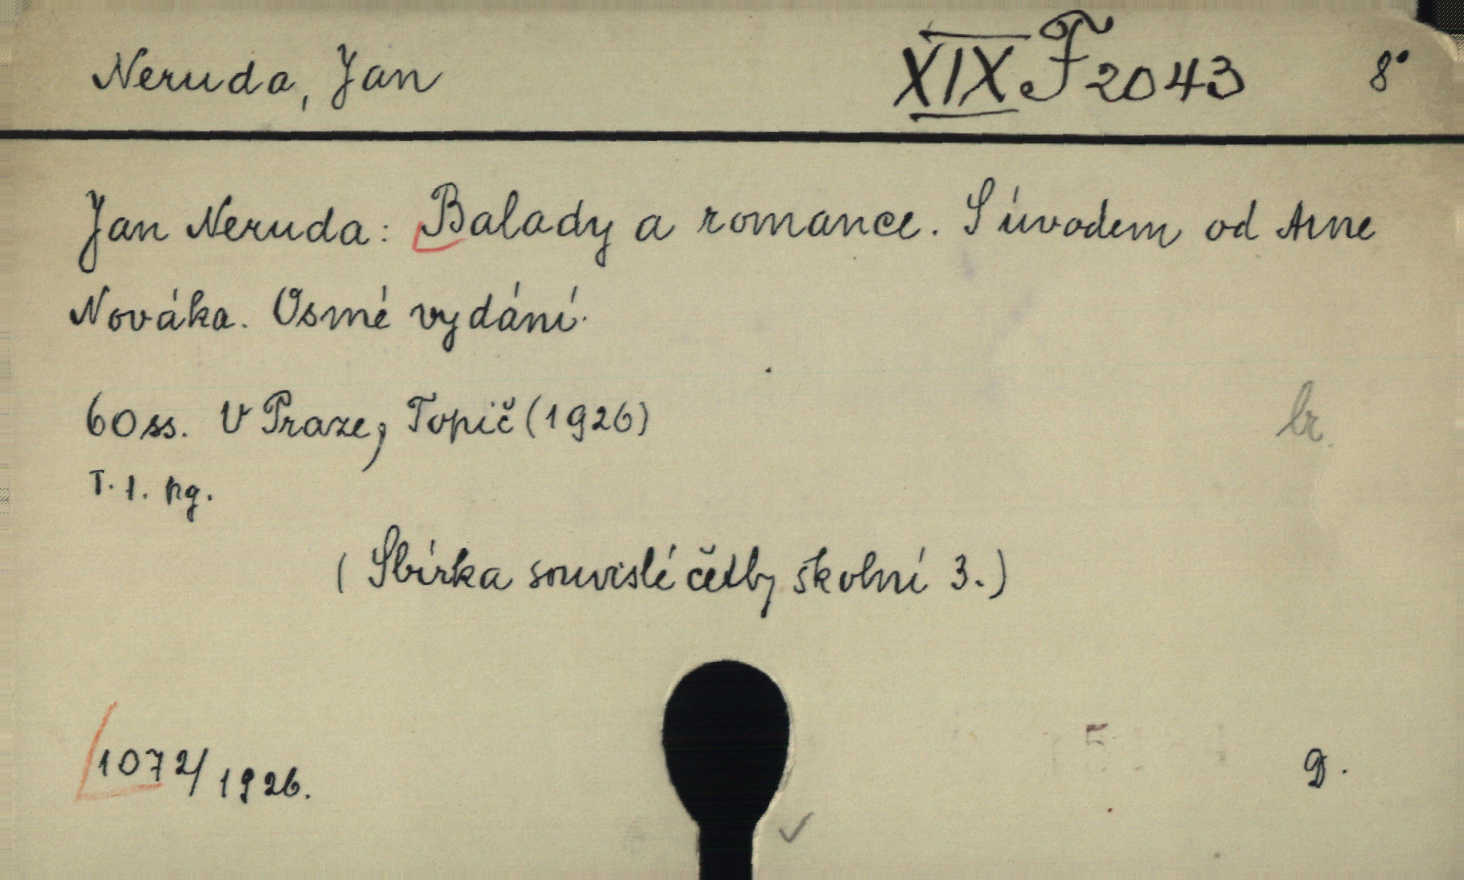 Neruda, Jan XIX F 2043 8°
Jan Neruda: Balady a romance. S úvodem od Arne
Nováka. Osmé vydání.
60 ss. V Praze, Topič (1926)
br.
T. 1. pg.
(Sbírka souvislé četby školní 3.)
1072/1926.
D.